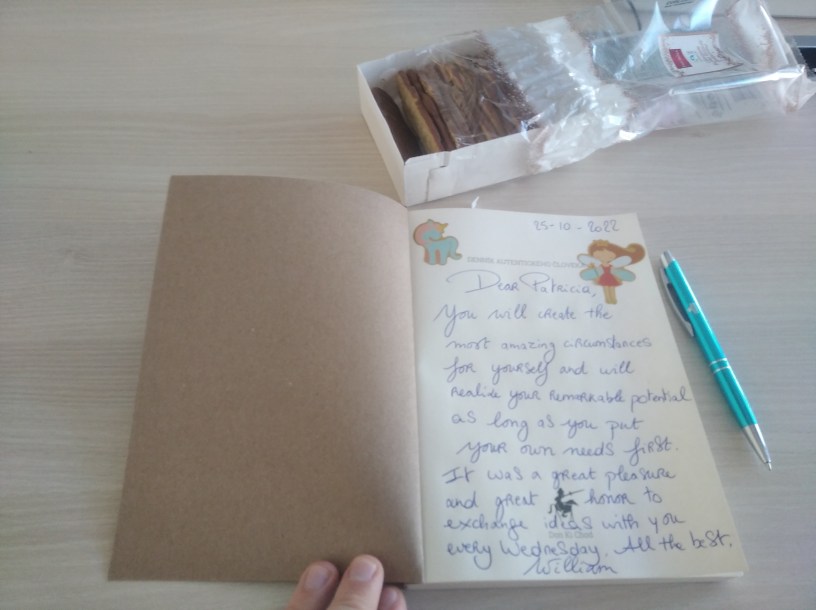 25-10-2022
DENNÍK AUTENTICKÉHO ČLOVEKA
Dear Patricia,
You will create the
most amazing circumstances
for yourself and will
realize your remarkable potential
as long as you put
your own needs first.
It was a great pleasure
and great honor to
exchange ideas with you
every Wednesday. All the best,
William